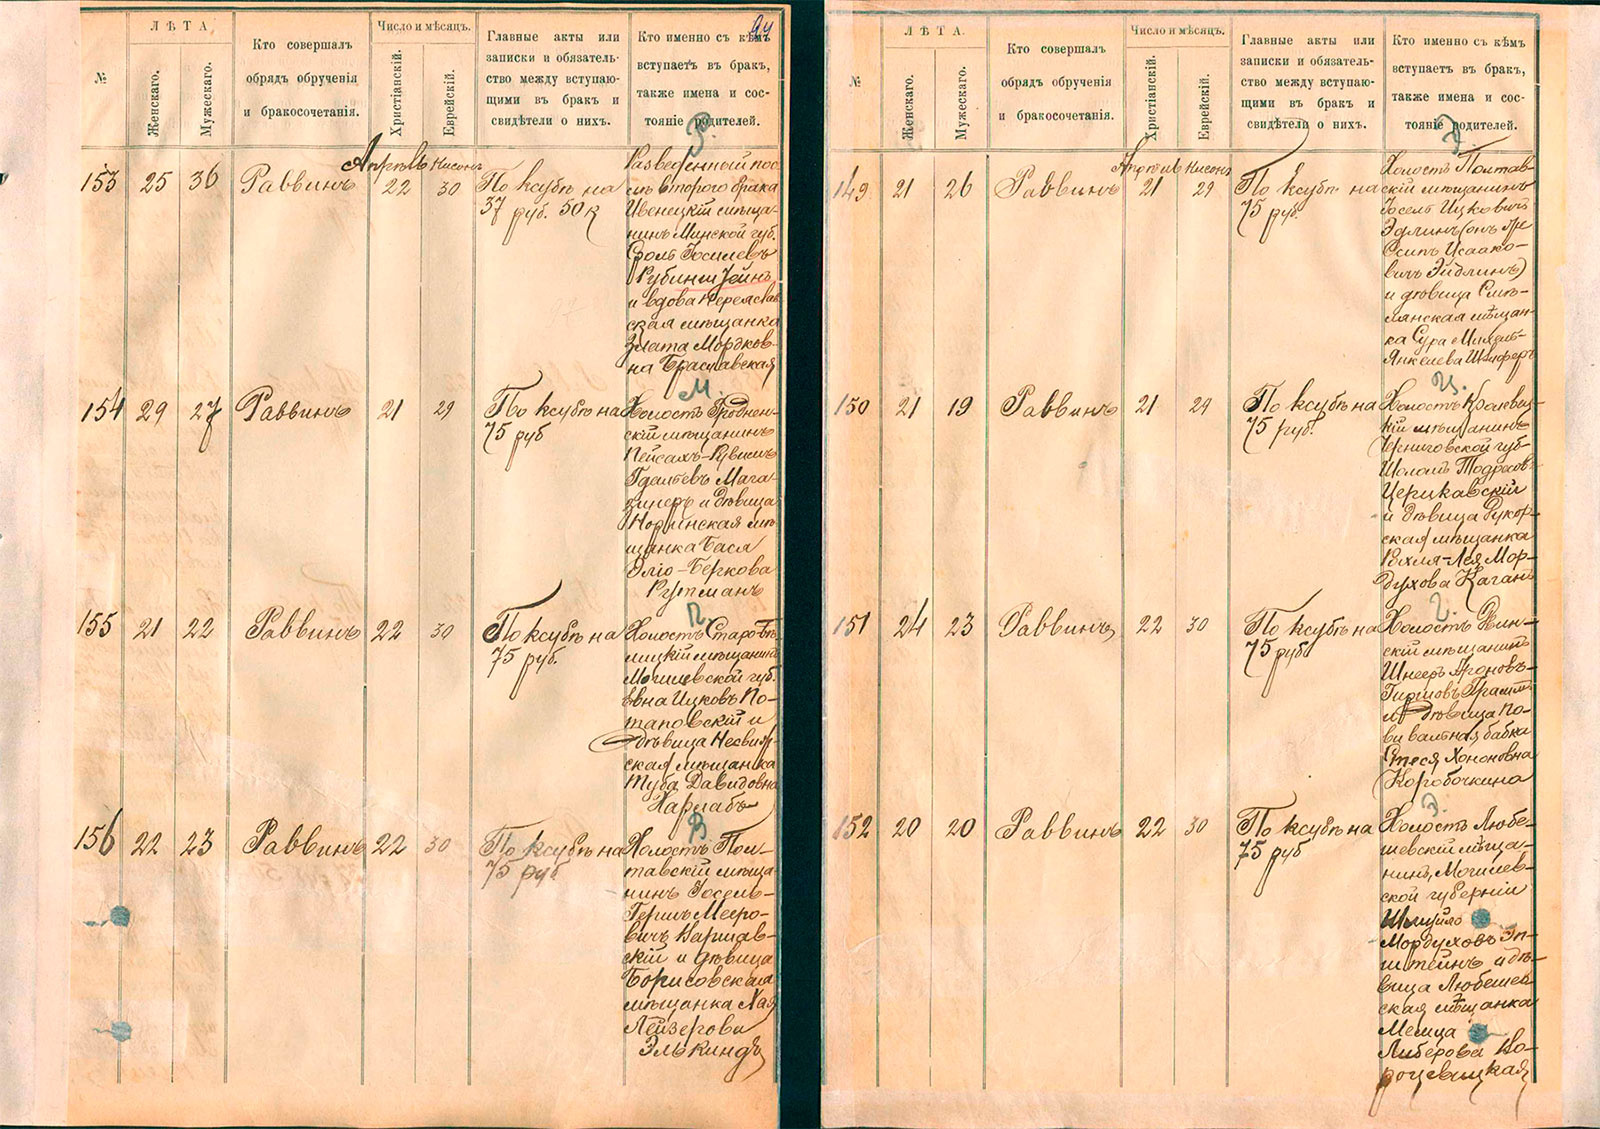 94
№
ЛѢТА.
Женскаго.
Мужескаго.
Кто совершалъ
обрядъ обрученія
и бракосочетанія.
Число и мѣсяцъ.
Христіанскій.
Еврейскій.
Главные акты или
записки и обязатель-
ство между вступаю-
щими въ бракъ и
свидѣтели о нихъ.
Кто именно съ кѣмъ
вступаетъ въ бракъ,
также имена и сос-
тояніе родителей.
Р.
153
25
36
Раввинъ
Апрѣль
22
Нисонъ
30
По ксубѣ на
37 руб. 50 к
Разведенный пос-
лѣ второго брака
Ивенецкій мѣща-
нинъ Минской губ.
Сроль Іосилевъ
Рубинштейнъ
и вдова Переяслав-
ская мѣщанка
Злата Мордков-
на Браславская
М.
154
29
27
Раввинъ
21
29
По ксубѣ на
75 руб
Холостъ Гроднен-
скій мѣщанинъ
Пейсахъ-Рувимъ
Гдалевъ Мага-
зинеръ и дѣвица
мѣ-
щанка Бася
Эліо-Беркова
Рутманъ
П.
155
21
22
Раввинъ
22
30
По ксубѣ на
75 руб.
Холостъ
мѣщанинъ
Могилевской губ.
Ицковъ По-
таповскій и
дѣвица Несвиж-
ская мѣщанка
Туба Давидовна
Харлабъ
В
156
22
23
Раввинъ
22
30
По ксубѣ на
75 руб
Холостъ Пол-
тавскій мѣща-
нинъ Іосель-
Гершъ Мееро-
вичъ Варшав-
скій и дѣвица
Борисовская
мѣщанка Хая
Лейзерова
Элькиндъ
№
ЛѢТА.
Женскаго.
Мужескаго.
Кто совершалъ
обрядъ обрученія
и бракосочетанія.
Число и мѣсяцъ.
Христіанскій.
Еврейскій.
Главные акты или
записки и обязатель-
ство между вступаю-
щими въ бракъ и
свидѣтели о нихъ.
Кто именно съ кѣмъ
вступаетъ въ бракъ,
также имена и сос-
тояніе родителей.
Э.
149
21
26
Раввинъ
Апрѣль
21
Нисонъ
29
По ксубѣ на
75 руб.
Холостъ Полтав-
скій мѣщанинъ
Іосель Ицковичъ
Эдлинъ (онъ же
Осипъ Исаако-
вичъ Эйдлинъ)
и дѣвица Смѣ-
лянская мѣщан-
ка Сура
Янкелева Шиферъ
Ц.
150
21
19
Раввинъ
21
29
По ксубѣ на
75 руб.
Холостъ Кролевец-
кій мѣщанинъ
Черниговской губ.
Шоломъ Тодросовъ
Церикавскій
и дѣвица
ская мѣщанка
Рохля-Лея Мор-
духова Каганъ
Г.
151
24
23
Раввинъ
22
30
По ксубѣ на
75 руб
Холостъ Двин-
скій мѣщанинъ
Шнееръ Ароновъ-
Гиршовъ
и дѣвица По-
вивальная бабка
Стеся Хононовна
Коробочкина
Э.
152
20
20
Раввинъ
22
30
По ксубѣ на
75 руб
Холостъ Любе-
шевскій мѣща-
нинъ, Могилев-
ской губерніи
Шмуйло
Мордуховъ Эп-
штейнъ и дѣ-
вица Любешев-
ская мѣщанка
Либерова Ко-
роцевицкая